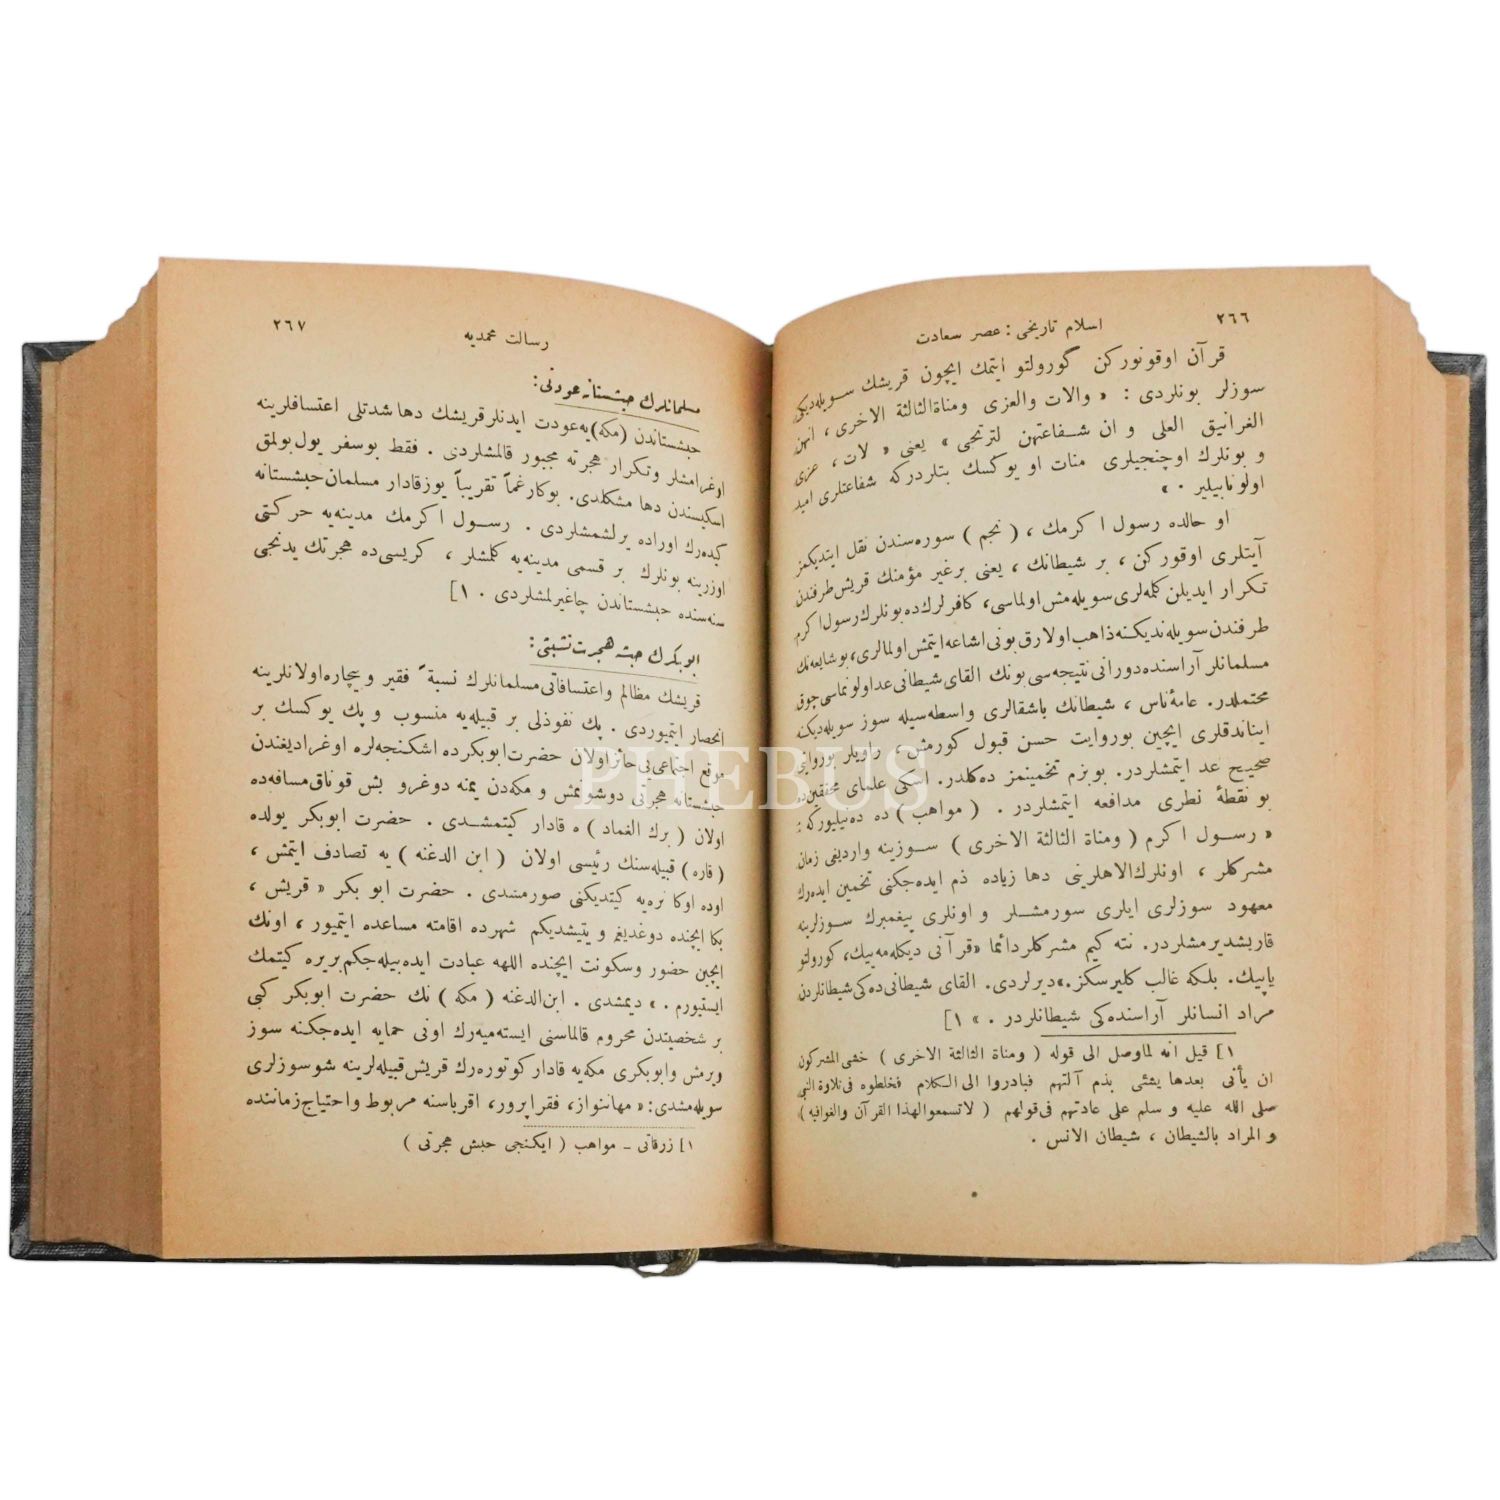 ٢٦٦
اسلام تاريخى : عصر سعادت
قرآن اوقونوركن كورولتو ايتمك ايچون قريشك سويله‌ديكى
سوزلر بونلردى : « والات والعزى ومناة الثالثة الاخرى ، انهن
الغرانيق العلى و ان شفاعتهن لترتجى » يعنى « لات ، عزى
و بونلرك اوچنجيلرى منات او يوكسك بتلردركه شفاعتلرى اميد
اولونابيلير . »
او حالده رسول اكرمك ، ( نجم ) سوره‌سندن نقل ايتديكمز
آيتلرى اوقوركن ، بر شيطانك ، يعنى برغير مؤمنك قريش طرفندن
تكرار ايديلن كلمه‌لرى سويله‌مش اولماسى، كافرلرك ده بونلرك رسول اكرم
طرفندن سويله‌نديكنه ذاهب اولارق بونى اشاعه ايتمش اولمالرى، بوشايعه‌نك
مسلمانلر آراسنده دورانى نتيجه‌سى بونك القاى شيطانى عد اولونماسى چوق
محتملدر. عامۀ ناس ، شيطانك باشقالرى واسطه‌سيله سوز سويله‌ديكنه
ايناندقلرى ايچين بوروايت حسن قبول كورمش، راويلر بوروايى
صحيح عد ايتمشلردر. بو بزم تخمينمز ده‌كلدر. اسكى علماى محققين
بو نقطۀ نظرى مدافعه ايتمشلردر . ( مواهب ) ده ده‌نيليوركه :
« رسول اكرم ( ومناة الثالثة الاخرى ) سوزينه وارديغى زمان
مشركلر ، اونلرك الاهلرينى دها زياده ذم ايده‌جكنى تخمين ايده‌رك
معهود سوزلرى ايلرى سورمشلر و اونلرى پيغمبرك سوزلرينه
قاريشديرمشلردر. نته كيم مشركلر دائما «قرآنى ديكله‌مه‌ييك، كورولتو
ياپيك. بلكه غالب كليرسكز.» ديرلردى. القاى شيطانى ده‌كى شيطانلردن
مراد انسانلر آراسنده‌كى شيطانلردر . » [١
[١ قيل انه لماوصل الى قوله ( ومناة الثالثة الاخرى ) خشى المشركون
ان يأتى بعدها بشئ بذم آلتهم فبادروا الى الكلام فخلطوه فى تلاوة النبى
صلى الله عليه و سلم على عادتهم فى قولهم ( لاتسمعوا لهذا القرآن والغوافيه )
و المراد بالشيطان ، شيطان الانس .
رسالت محمديه
٢٦٧
مسلمانلرك حبشستانه عودتى:
حبشستاندن (مكه)يه عودت ايدنلر قريشك دها شدتلى اعتسافلرينه
اوغرامشلر وتكرار هجرته مجبور قالمشلردى . فقط بوسفر يول بولمق
اسكيسندن دها مشكلدى. بوكا رغماً تقريباً يوزقادار مسلمان حبشستانه
كيده‌رك اوراده يرلشمشلردى . رسول اكرمك مدينه‌يه حركتى
اوزرينه بونلرك بر قسمى مدينه‌يه كلمشلر ، كريسى ده هجرتك يدنجى
سنه‌سنده حبشستاندن چاغيرلمشلردى . [١
ابوبكرك حبشه هجرت تشبثى:
قريشك مظالم و اعتسافاتى مسلمانلرك نسبةً فقير و بيچاره اولانلرينه
انحصار ايتميوردى . پك نفوذلى بر قبيله‌يه منسوب و پك يوكسك بر
موقع اجتماعى‌يى حائز اولان حضرت ابوبكرده اشكنجه‌لره اوغراديغندن
حبشستانه هجرتى دوشونمش و مكه‌دن يمنه دوغرو بش قوناق مسافه‌ده
اولان ( برك الغماد ) ه قادار كيتمشدى . حضرت ابوبكر يولده
( قاره ) قبيله‌سنك رئيسى اولان ( ابن الدغنه ) يه تصادف ايتمش ،
اوده اوكا نره‌يه كيتديكنى صورمشدى . حضرت ابو بكر « قريش ،
بكا ايچنده دوغديغم و يتيشديكم شهرده اقامته مساعده ايتميور ، اونك
ايچين حضور وسكونت ايچنده اللهه عبادت ايده‌بيله‌جكم بريره كيتمك
ايستيورم . » ديمشدى . ابن‌الدغنه ( مكه ) نك حضرت ابوبكر كبى
بر شخصيتدن محروم قالماسنى ايسته‌ميه‌رك اونى حمايه ايده‌جكنه سوز
ويرمش و ابوبكرى مكه‌يه قادار كوتوره‌رك قريش قبيله‌لرينه شو سوزلرى
سويله‌مشدى: « مهاننواز، فقرا پرور، اقرباسنه مربوط و احتياج زماننده
[١ زرقانى ـ مواهب ( ايكنجى حبش هجرتى )
PHEBUS